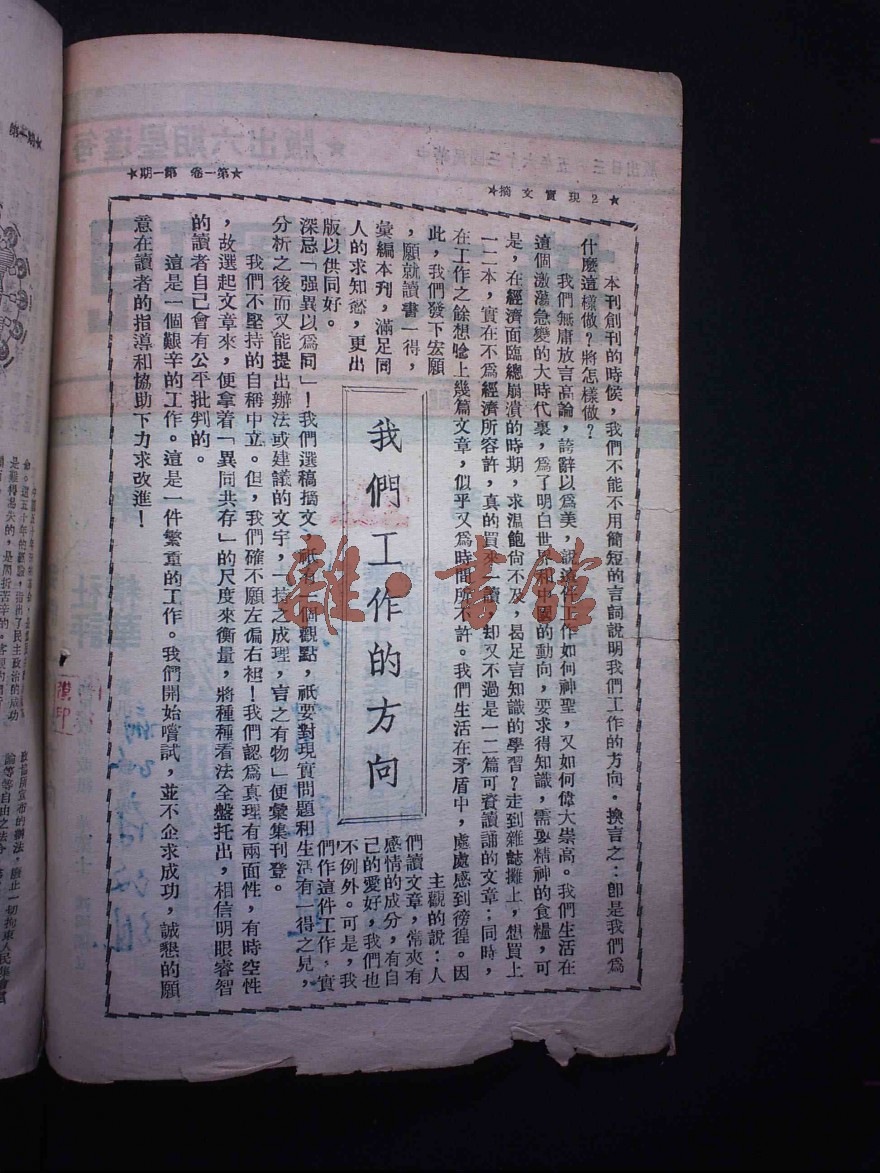 ★期一第 卷一第★
★2現實文摘★
我們工作的方向
本刊創刊的時候，我們不能不用簡短的言詞說明我們工作的方向。換言之：即是我們爲
什麼這樣做？將怎樣做？
我們無庸放言高論，誇辭以爲美，說這件工作如何神聖，又如何偉大崇高。我們生活在
這個激蕩急變的大時代裏，爲了明白世界和中國的動向，要求得知識，需要精神的食糧，可
是，在經濟面臨總崩潰的時期，求溫飽尚不及，曷足言知識的學習？走到雜誌攤上，想買上
一二本，實在不爲經濟所容許，真的買來一讀，却又不過是一二篇可資讀誦的文章；同時，
在工作之餘想唸上幾篇文章，似乎又爲時間所不許。我們生活在矛盾中，處處感到徬徨。因
此，我們發下宏願
，願就讀書一得，
彙編本刋，滿足同
人的求知慾，更出
版以供同好。
主觀的說：人
們讀文章，常夾有
感情的成分，有自
己的愛好，我們也
不例外。可是，我
們作這件工作，實
深忌「强異以爲同」！我們選稿摘文，祇有一個觀點，祇要對現實問題和生活有一得之見，
分析之後而又能提出辦法或建議的文字，「持之成理，言之有物」便彙集刊登。
我們不堅持的自稱中立。但，我們確不願左偏右袒！我們認爲真理有兩面性，有時空性
，故選起文章來，便拿着「異同共存」的尺度來衡量，將種種看法全盤托出，相信明眼睿智
的讀者自己會有公平批判的。
這是一個艱辛的工作。這是一件繁重的工作。我們開始嘗試，並不企求成功，誠懇的願
意在讀者的指導和協助下力求改進！
雜·書館